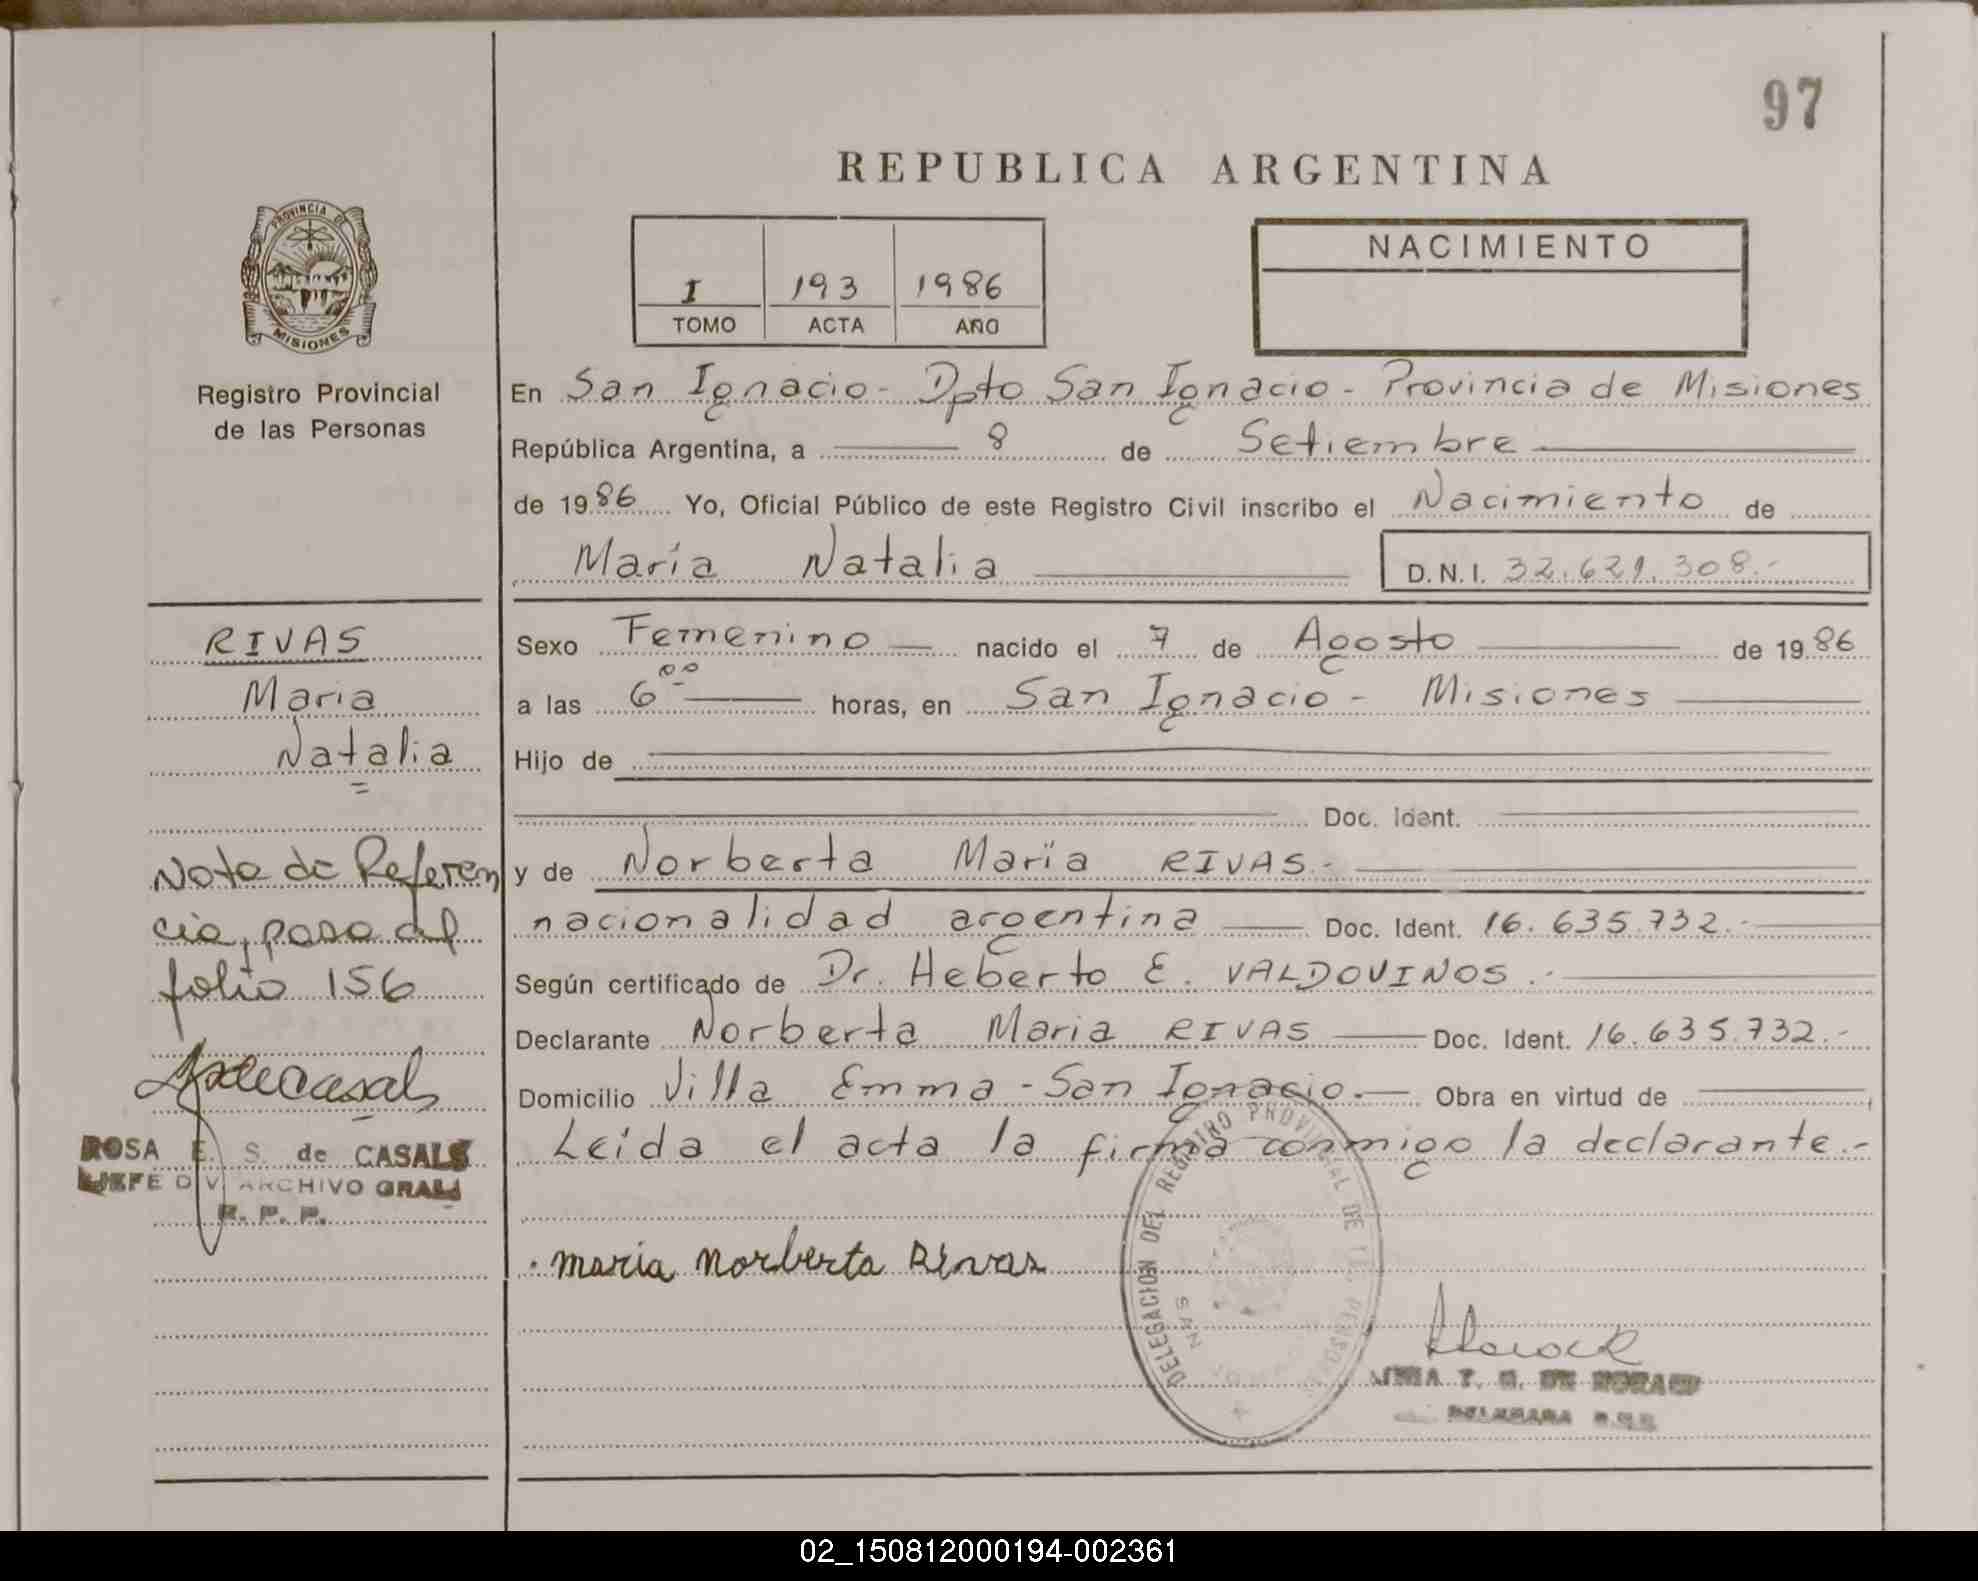 97
REPUBLICA ARGENTINA
PROVINCIA DE
MISIONES
Registro Provincial
de las Personas
I 193 1986
TOMO ACTA AÑO
NACIMIENTO
En San Ignacio - Dpto San Ignacio - Provincia de Misiones
República Argentina, a 8 de Setiembre
de 1986 Yo, Oficial Público de este Registro Civil inscribo el Nacimiento de
María Natalia D.N.I. 32.621.308.-
Sexo Femenino nacido el 7 de Agosto de 1986
a las 6 00 horas, en San Ignacio - Misiones
Hijo de
Doc. Ident.
y de Norberta María RIVAS.-
nacionalidad argentina Doc. Ident. 16.635.732.-
Según certificado de Dr. Heberto E. VALDOVINOS.-
Declarante Norberta Maria RIVAS Doc. Ident. 16.635.732.-
Domicilio Villa Emma - San Ignacio.- Obra en virtud de
Leída el acta la firma conmigo la declarante.-
maria norberta Rivas
RIVAS
Maria
Natalia
Nota de Referen
cia, pasa al
folio 156
ROSA E. S. de CASALS
JEFE DIV. ARCHIVO GRAL
R. P. P.
DELEGACION DEL REGISTRO PROVINCIAL DE LAS PERSONAS
SAN IGNACIO
02_150812000194-002361